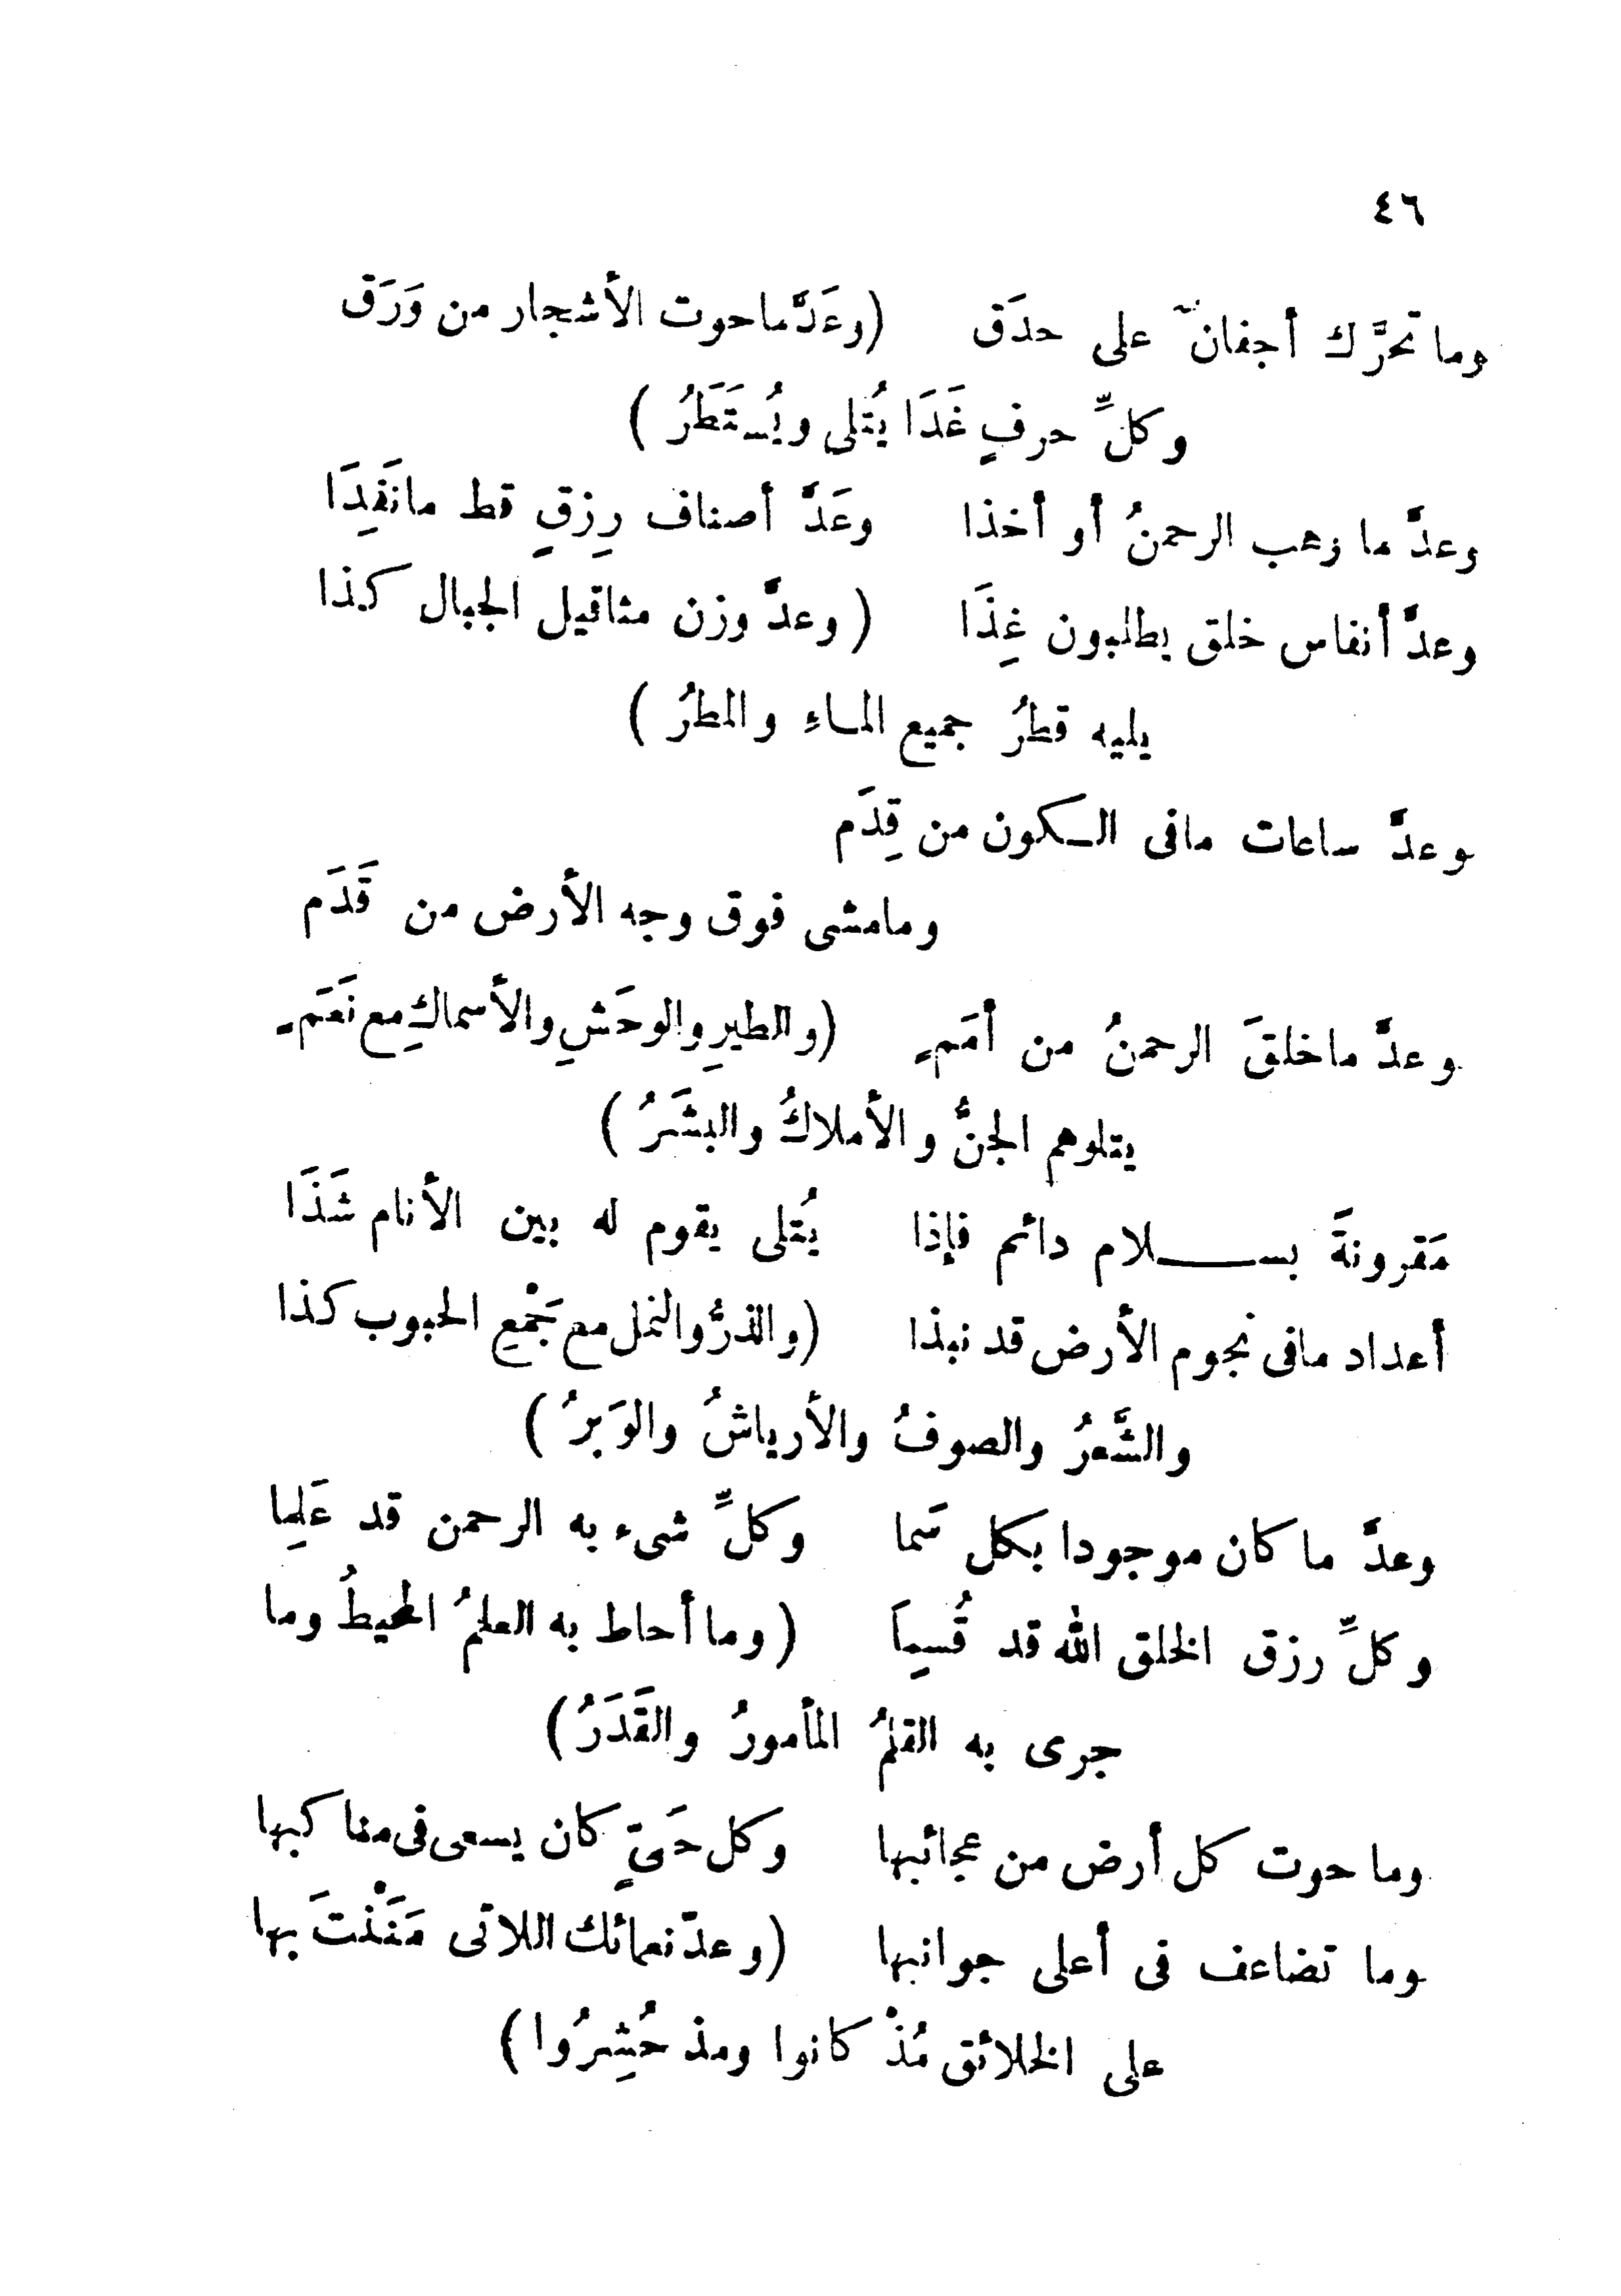 ٤٦
وما تحرَّك أجفانٌ على حدَق (وعَدَّ ماحوت الأشجار من وَرَق
وكلِّ حرفٍ غَدَا يُتلى ويُستَطَرُ )
وعدَّ ما وهب الرحمنُ أو أخذا وعَدَّ أصناف رِزقٍ قط مانَفِدَا
وعدَّ أنفاس خلق يطلبون غِذَا ( وعدَّ وزن مثاقيل الجبال كذا
يليه قطرُ جميع الماءِ والمطرُ )
وعدَّ ساعات مافى الـكون من قِدَم
ومامشى فوق وجه الأرض من قَدَم
وعدَّ ماخلقَ الرحمنُ من أمَمٍ (والطيرِ والوحَشِ والأسماكِ مع نَعَمٍ
يتلوهم الجنُّ والأملاكُ والبشَرُ )
مَقرونةً بســـلام دائم فإذا يُتلى يقوم له بين الأنام شَذَا
أعداد مافى نجوم الأرض قد نبذا (والذرُّ والنمل مع جَمْعِ الحبوب كذا
والشَّعرُ والصوفُ والأرياشُ والوَبرُ )
وعدَّ ما كان موجودا بكل سَما وكلِّ شىء به الرحمن قد عَلِما
وكلِّ رزق الخلق الله قد قُسِماَ ( وما أحاط به العلمُ المحيطُ وما
جرى به القلمُ المأمورُ والقَدَرُ)
وما حوت كل أرض من عجائبها وكل حَىٍّ كان يسعى فى مناكبها
وما تضاعف فى أعلى جوانبها (وعدّ نعمائك اللاتى مَنَنْتَ بها
على الخلائق مُذْ كانوا ومذ حُشِرُوا )